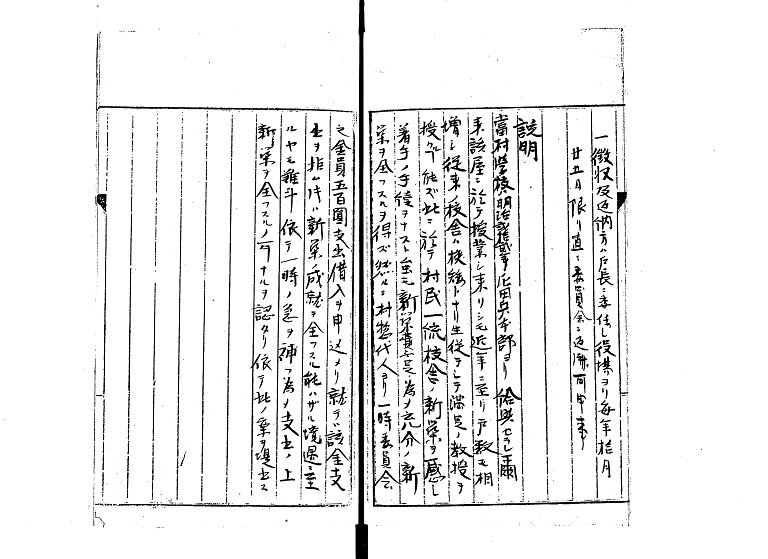 一徴収及返納方ハ戸長ニ委任シ役場ヨリ毎年拾月
廿五日限リ直ニ委員会ニ返済可申事
説明
當村学校ハ明治 屯田兵本部ヨリ給與セラレ爾
来該屋ニ於テ授業シ来リシモ近年ニ至リ戸数モ相
増シ従来ノ校舎ハ狭矮トナリ生徒ヲシテ満足ノ教授ヲ
授クル能ズ此ニ於テ村民一統校舎ノ新築ヲ感シ
着手ノ手續ヲナスト雖モ新築費 為メ充分ノ新
築ヲ全フスルヲ得ズ然ルニ村惣代人ヨリ一時委員会
之金員五百圓支出借入ヲ申込メリ就テハ該金支
出ヲ拒ムトキハ新築ノ成就ヲ全フスル能ハザル境遇ニ至
ルヤモ難斗依テ一時ノ急ヲ補フ為メ支出ノ上
新築ヲ全フスルノ可ナルヲ認タリ依テ此ノ案ヲ提出ス